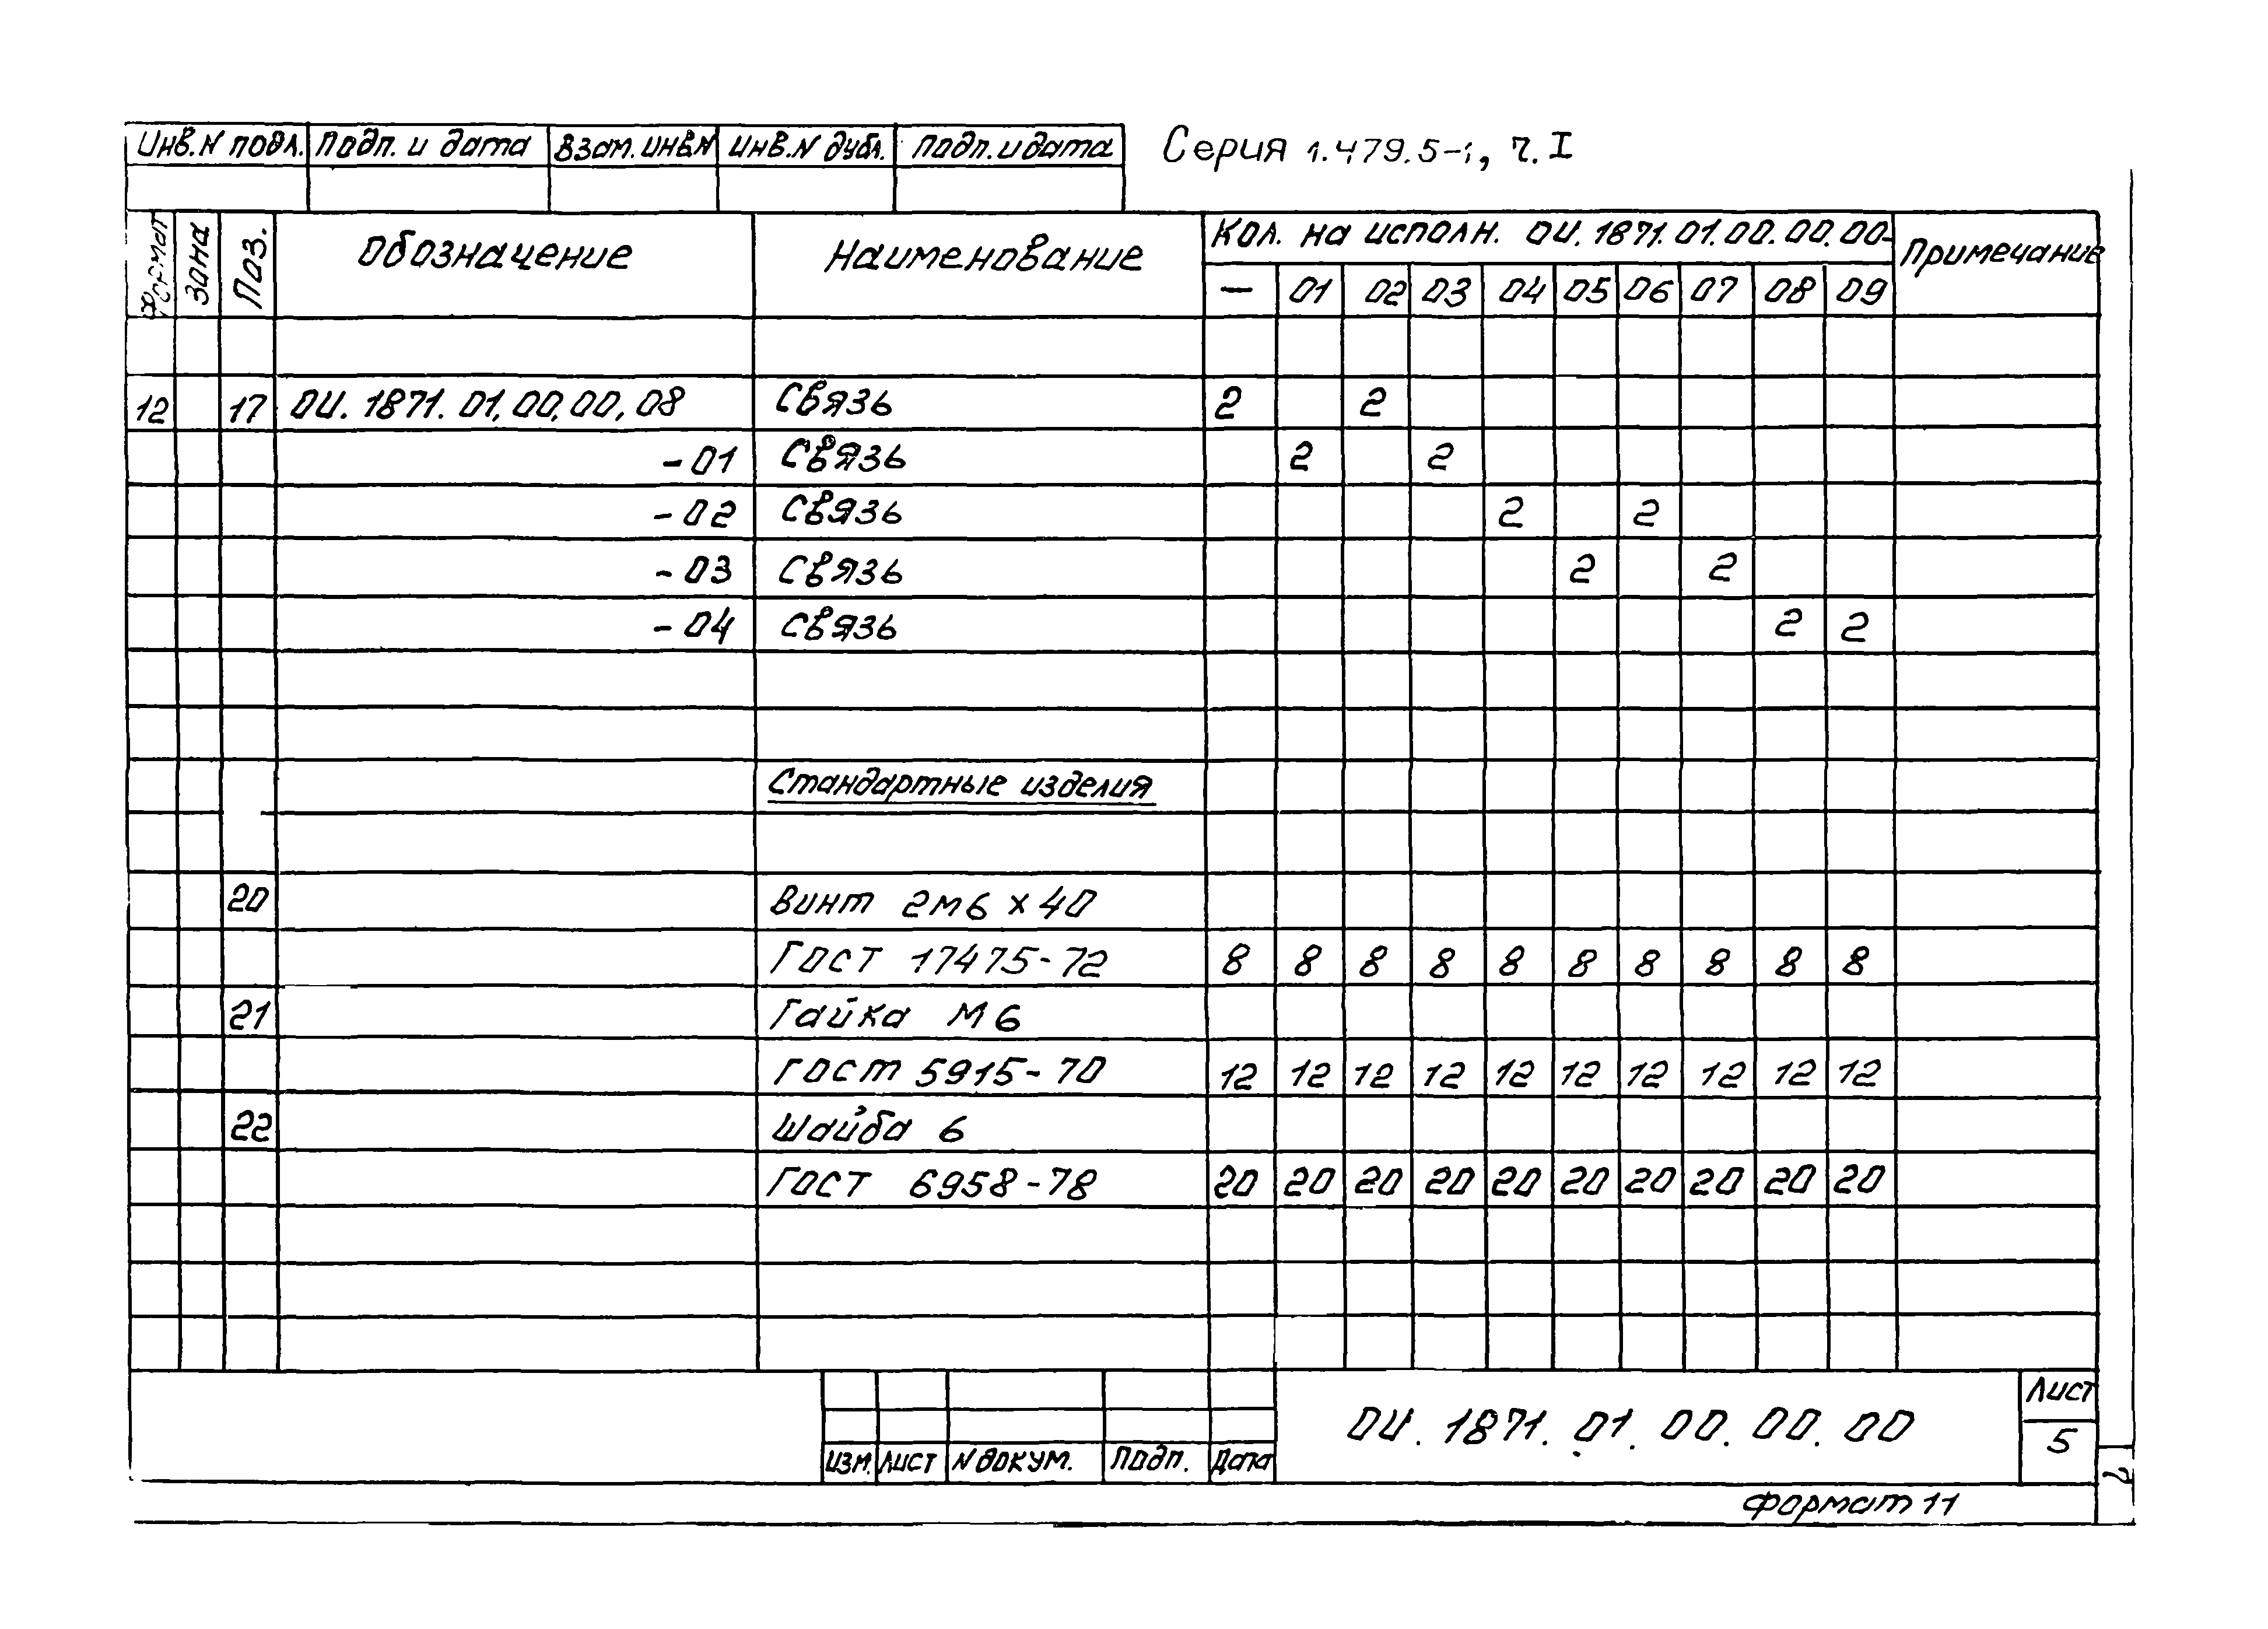 Инв.N подл. Подп. и дата Взам. инв.N Инв.N дубл. Подп. и дата Серия 1.479.5-1, ч. I
Формат Зона Поз. Обозначение Наименование Кол. на исполн. ОИ. 1871. 01. 00. 00. 00- Примечание
— 01 02 03 04 05 06 07 08 09
12 17 ОИ. 1871. 01. 00. 00. 08 Связь 2 2
-01 Связь 2 2
-02 Связь 2 2
-03 Связь 2 2
-04 Связь 2 2
Стандартные изделия
20 Винт 2м6 х 40
ГОСТ 17475-72 8 8 8 8 8 8 8 8 8 8
21 Гайка М6
ГОСТ 5915-70 12 12 12 12 12 12 12 12 12 12
22 Шайба 6
ГОСТ 6958-78 20 20 20 20 20 20 20 20 20 20
Изм. Лист N докум. Подп. Дата ОИ. 1871. 01. 00. 00. 00 Лист
5
Формат 11
7